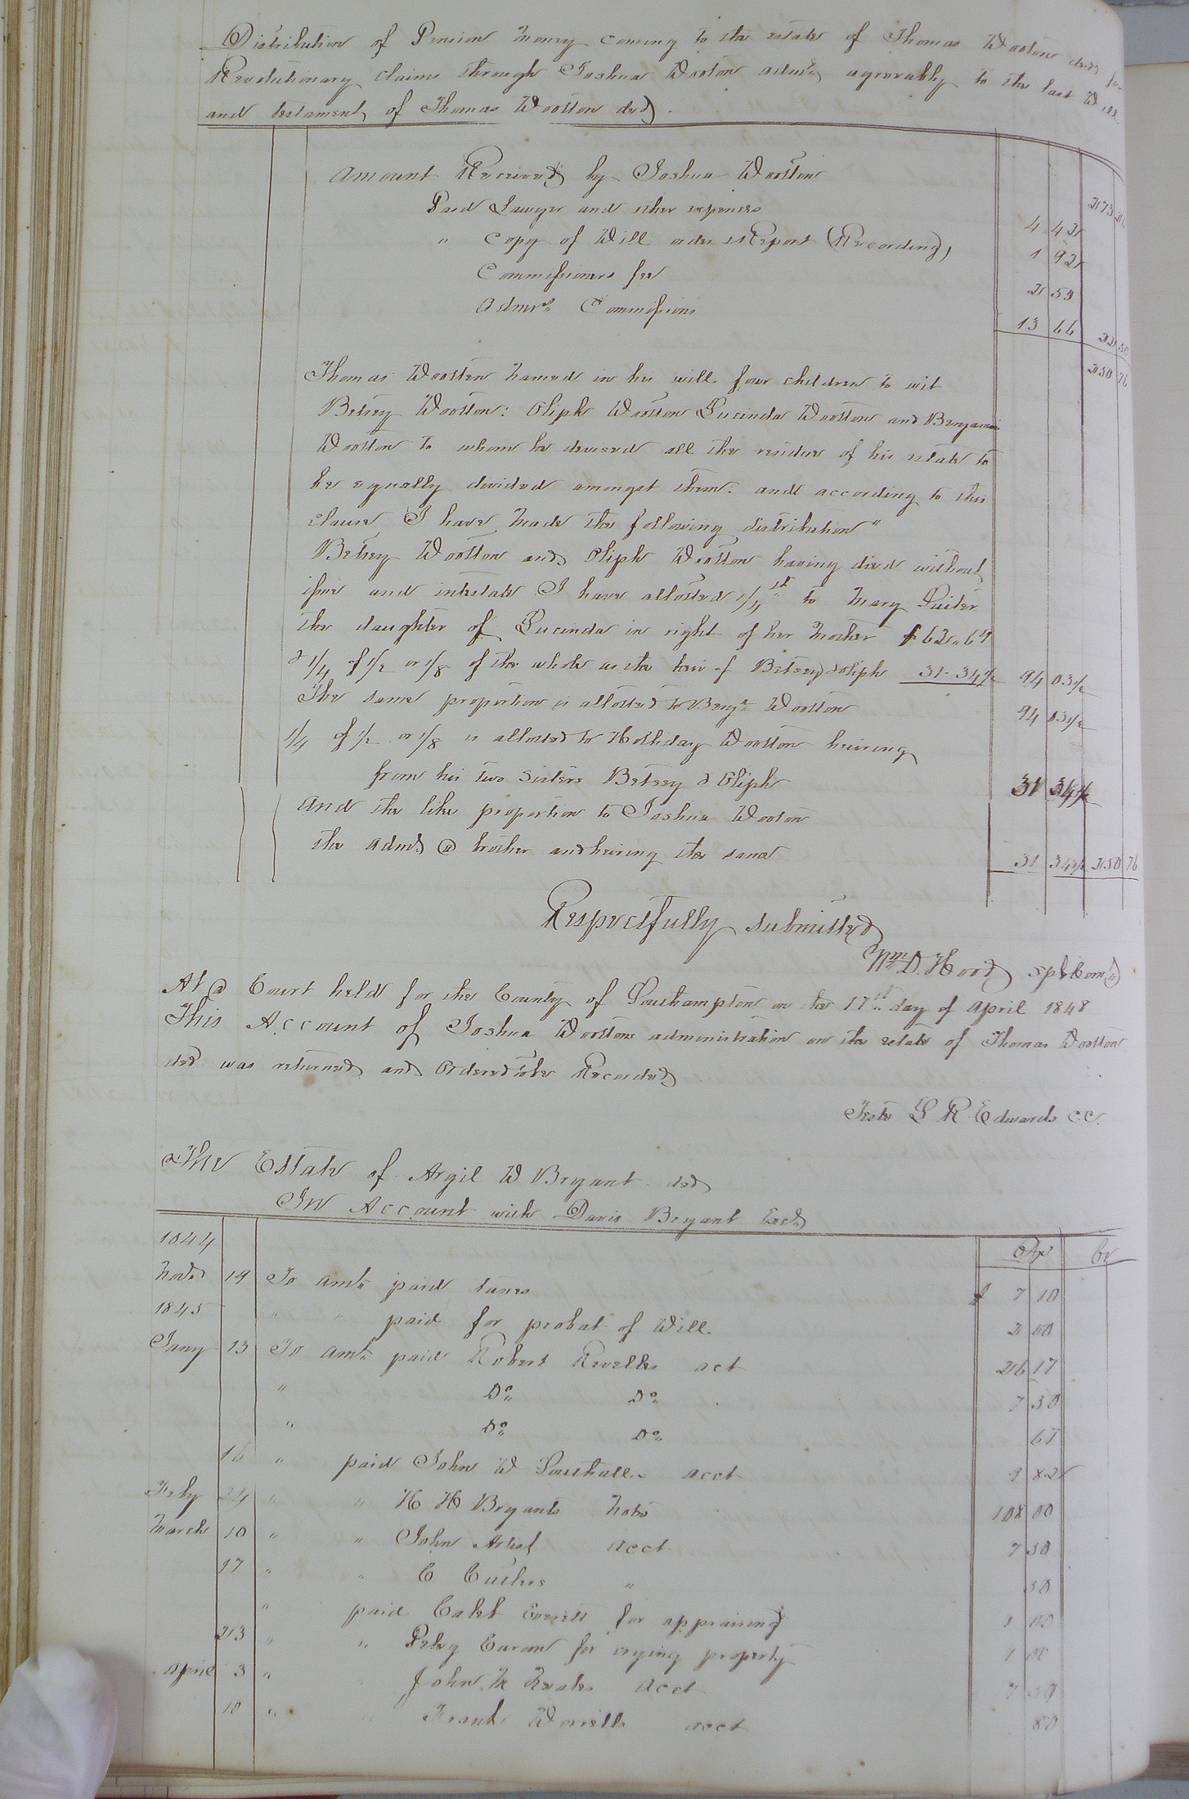 Distribution of Pension Money coming to the estate of Thomas Wooton decd for
Revolutionary claims through Joshua Wooton admr agreeably to the last Will
and testament of Thomas Wootton decd.
Amount Received by Joshua Wootton 273 26
Paid Lawyer and other expenses 4 42
" Copy of Will order & Report (Recording) 1 92
Commissioners fee 2 50
Admrs Commissions 13 66 22 50
250 76
Thomas Wootten named in his will four children to wit
Betsey Wootton: Oliph Wootton Lucinda Wootton and Benjamin
Wootton to whom he devised all the residue of his estate to
be equally devided amongst them: and according to this
clause I have made the following distribution"
Betsey Wootton and Oliph Wootton having died without
issue and intestate I have allotted 1/4th to Mary Suiter
the daughter of Lucinda in right of her Mother $62.69
& 1/4 of 1/2 or 1/8 of the whole as the heir of Betsey & Oliph 31.34 1/2 94 03 1/2
The same proportion is allotted to Benjn Wootton 94 03 1/2
1/4 of 1/2 or 1/8 is allotted to Holliday Wootton heiring
from his two sisters Betsey & Oliph 31 34 1/2
And the like proportion to Joshua Wooton
the Admr & brother and heiring the same 31 34 1/2 250 76
Respectfully submitted
Wm D. Hood spl Comr
At a Court held for the County of Southampton on the 17th day of April 1848
This Account of Joshua Woottons administration on the estate of Thomas Wootton
decd was returned and Ordered to be Recorded
Teste L R Edwards CC.
The Estate of Argil W Bryant decd
In Account with Davis Bryant Exor
1844 Dr Cr
Novr 19 To amt paid taxes $ 7 10
1845 " " paid for probat of Will. 2 00
Jany 13 To amt paid Robert Revells act 26 17
" Do Do 7 30
" Do Do 67
16 " paid John W Southall acct 9 82
Feby 24 " " H H Bryants Note 108 00
March 10 " " John Artist acct 7 50
17 " " C " 50
" paid Calet for appraising 1 00
23 " " for crying property 1 00
April 3 " John M acct 7 59
10 " " Frank Worrells acct 80